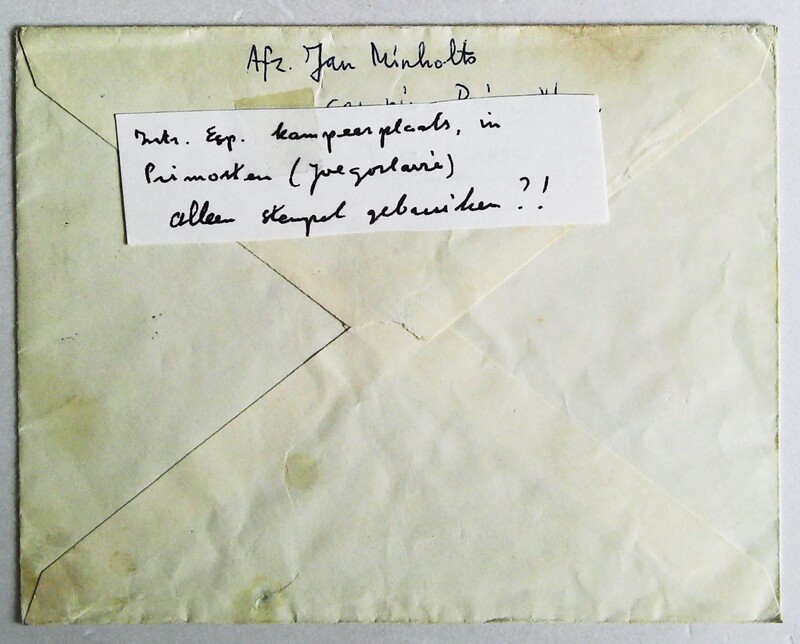 Afz. Jan Minholts
Intr. Esp. kampeerplaats, in
Primosten (Joegoslavië)
alleen stempel gebruiken ?!